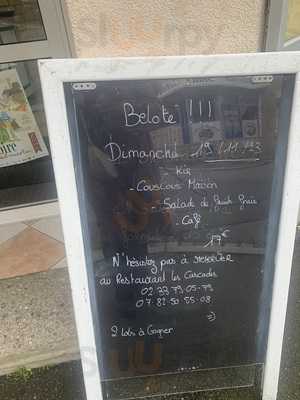 Belote !!!
Dimanche 19/11/23
- Kir
- Couscous Maison
- Salade de fruits frais
- Café
17€
N'hésitez pas à réserver
au Restaurant les Cascades
02 33 79 05-79
07 82 50 55-08
:)
2 lots à Gagner